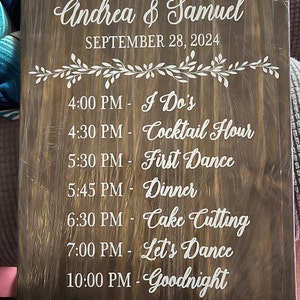 Andrea & Samuel
SEPTEMBER 28, 2024
4:00 PM - I Do's
4:30 PM - Cocktail Hour
5:30 PM - First Dance
5:45 PM - Dinner
6:30 PM - Cake Cutting
7:00 PM - Let's Dance
10:00 PM - Goodnight